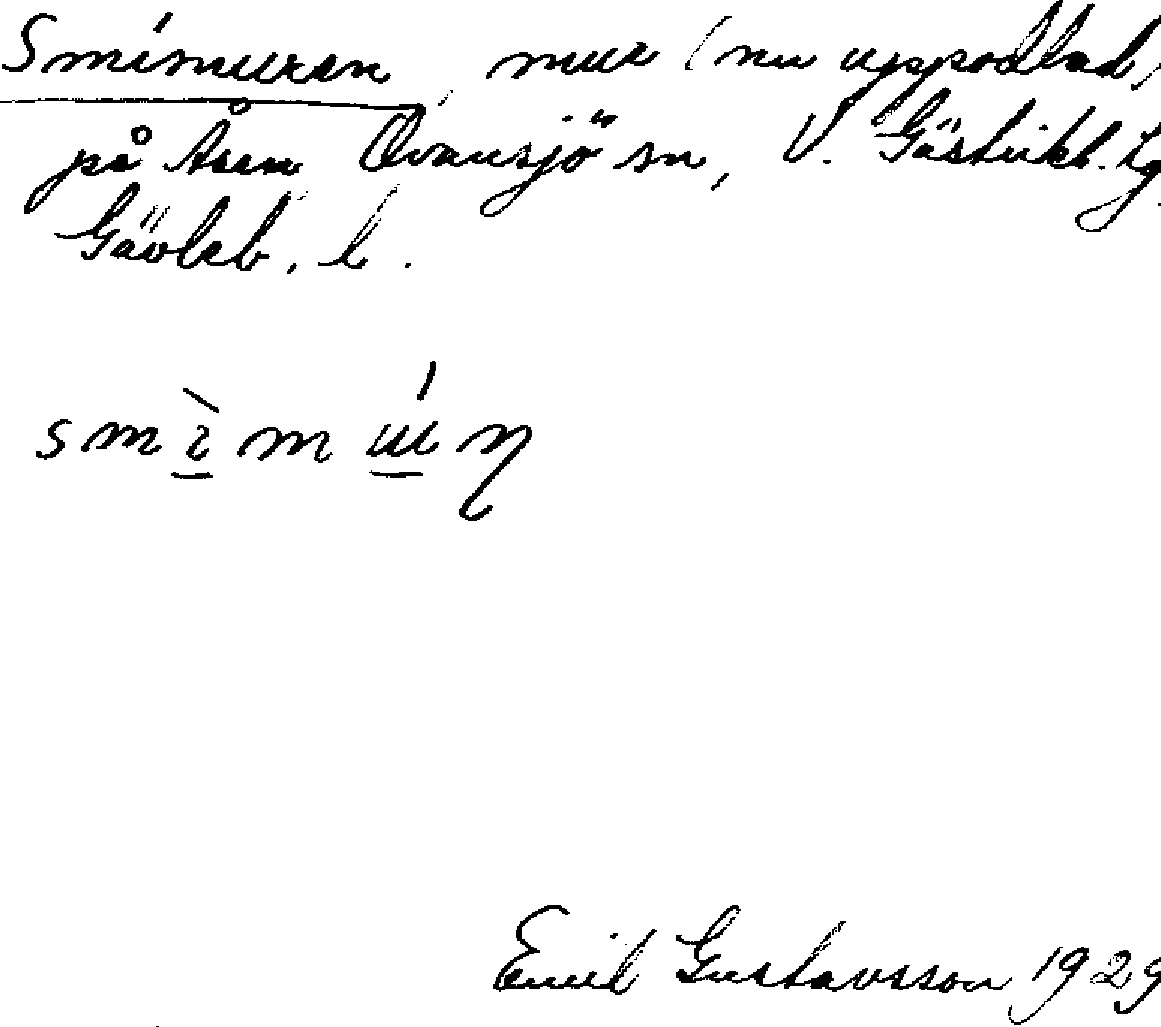 Smimuren, mur (nu uppodlad)
på Åsen Ovansjö sn, V. Gästrikl. tg.
Gävleb. l.
smì̲mú̲ŋ
Emil Gustavsson 1929